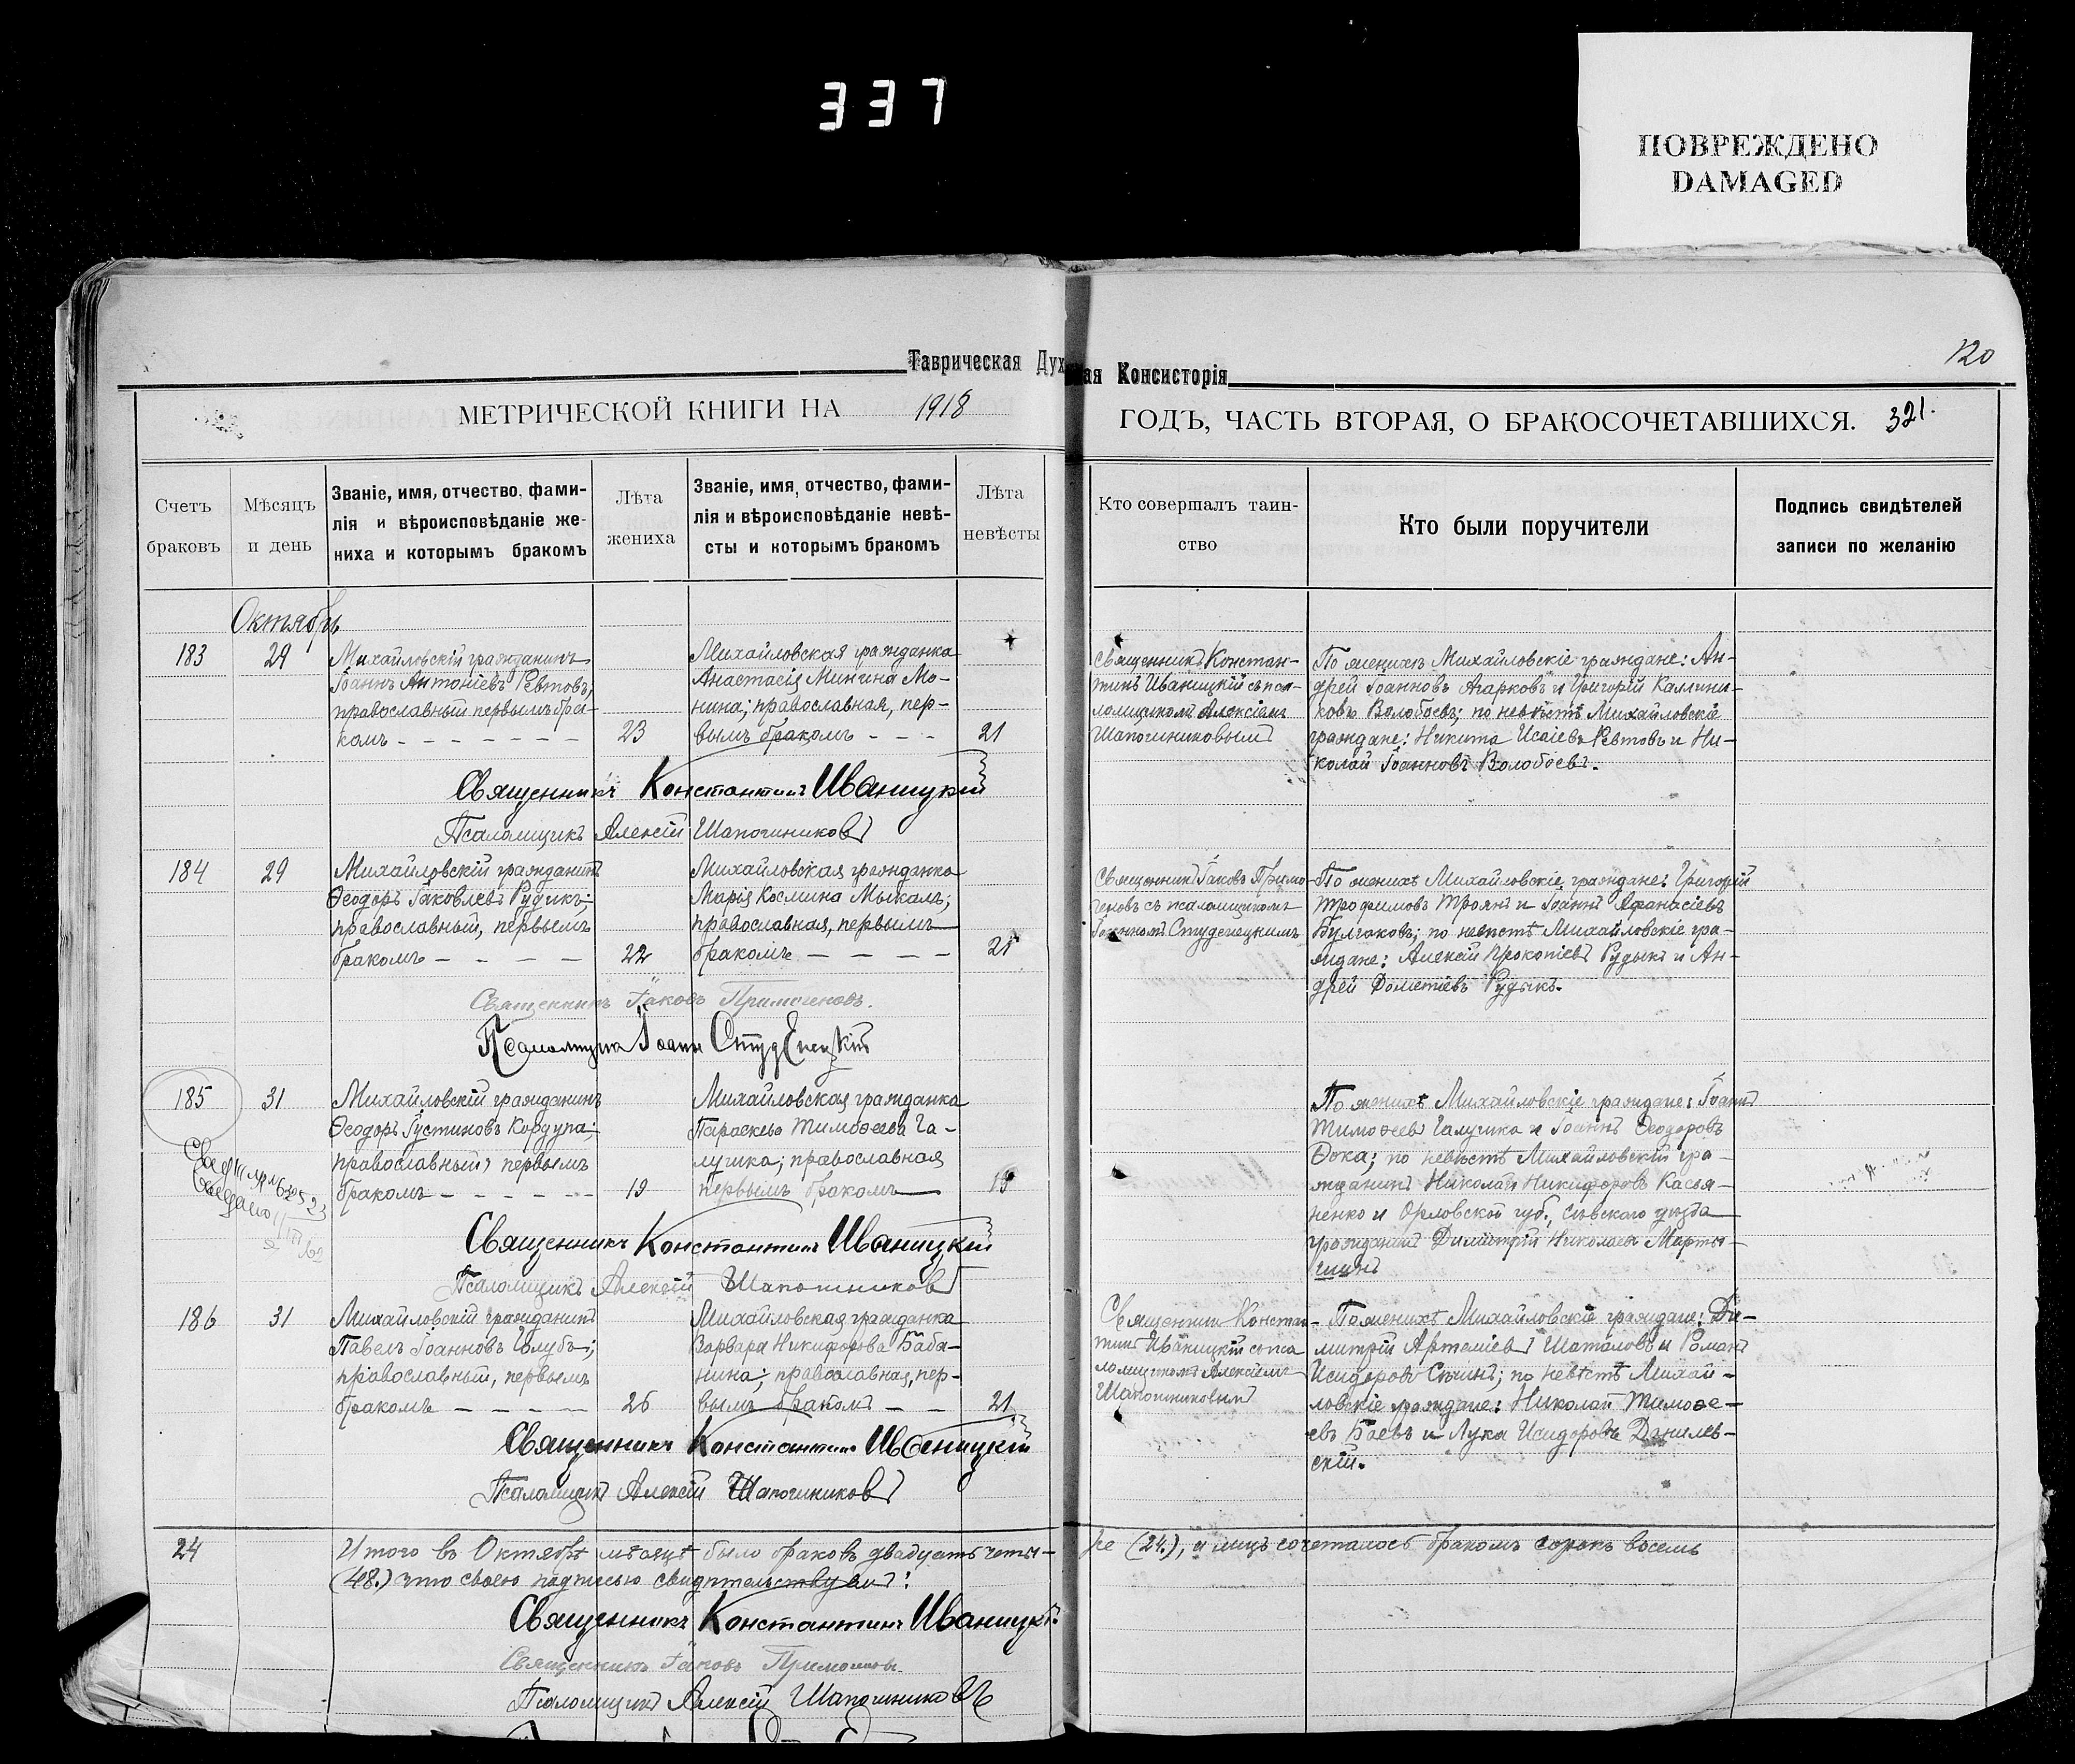 337
ПОВРЕЖДЕНО
DAMAGED
120
Таврическая Дух ная Консисторія
МЕТРИЧЕСКОЙ КНИГИ НА 1918 ГОДЪ, ЧАСТЬ ВТОРАЯ, О БРАКОСОЧЕТАВШИХСЯ. 321.
Счетъ
браковъ
Мѣсяцъ
и день
Званіе, имя, отчество, фами-
лія и вѣроисповѣданіе же-
ниха и которымъ бракомъ
Лѣта
жениха
Званіе, имя, отчество, фами-
лія и вѣроисповѣданіе невѣ-
сты и которымъ бракомъ
Лѣта
невѣсты
Кто совершалъ таин-
ство
Кто были поручители
Подпись свидѣтелей
записи по желанію
Октябрь
183
29
Михайловскій гражданинъ
Іоаннъ Антоніевъ Ревтовъ,
православный первымъ бра-
комъ - - - - - - -
23
Михайловская гражданка
Анастасія Минина Мо-
нина; православная, пер-
вымъ бракомъ - - -
21
Священникъ Констан-
тинъ Иваницкій съ пса-
ломщикомъ Алексіемъ
Шапошниковымъ
По женихѣ Михайловскіе граждане: Ан-
дрей Іоанновъ Агарковъ и Григорій Каллини-
ковъ Волобоевъ; по невѣстѣ Михайловскіе
граждане: Никита Исаіевъ Ревтовъ и Ни-
колай Іоанновъ Волобоевъ.
Священникъ Константинъ Иваницкій
Псаломщикъ Алексій Шапошниковъ
184
29
Михайловскій гражданинъ
Ѳеодоръ Іаковлевъ Рудикъ;
православный, первымъ
бракомъ - - - -
22
Михайловская гражданка
Марія Космина Мыкалъ;
православная, первымъ
бракомъ - - - -
21
Священникъ Іаковъ Примо-
геновъ съ псаломщикомъ
Іоанномъ Студенецкимъ
По женихѣ Михайловскіе граждане: Григорій
Трофимовъ Троянъ и Іоаннъ Аѳанасіевъ
Булгаковъ; по невѣстѣ Михайловскіе гра-
ждане: Алексій Прокопіевъ Рудыкъ и Ан-
дрей Дометіевъ Рудыкъ.
Священникъ Іаковъ Примогеновъ.
Псаломщикъ Іоаннъ Студенецкій
185
31
Михайловскій гражданинъ
Ѳеодоръ Іустиновъ Кордупа;
православный, первымъ
бракомъ - - - - -
19
Михайловская гражданка
Параскева Тимоѳеева Га-
лушка; православная
первымъ бракомъ
19
По женихѣ Михайловскіе граждане: Іоаннъ
Тимоѳеевъ Галушка и Іоаннъ Ѳеодоровъ
по невѣстѣ Михайловскій гра-
жданинъ Николай Никифоровъ Касья-
ненко и Орловской губ., Сѣвскаго уѣзда
гражданинъ Димитрій Николаевъ Марты-
Священникъ Константинъ Иваницкій
Псаломщикъ Алексій Шапошниковъ
186
31
Михайловскій гражданинъ
Павелъ Іоанновъ Голубъ;
православный, первымъ
бракомъ - - - -
26
Михайловская гражданка
Варвара Никифорова Баба-
нина; православная, пер-
вымъ бракомъ - -
21
Священникъ Констан-
тинъ Иваницкій съ пса
ломщикомъ Алексіемъ
Шапошниковымъ
По женихѣ Михайловскіе граждане: Ди-
митрій Артеміевъ Шаталовъ и Романъ
Исидоровъ по невѣстѣ Михай-
ловскіе граждане: Николай Тимоѳе-
евъ Баевъ и Лука Исидоровъ Данилев-
скій.
Священникъ Константинъ Иваницкій
Псаломщикъ Алексій Шапошниковъ
24
Итого въ Октябрѣ мѣсяцѣ было браковъ двадцать четы-
ре (24.), а лицъ сочеталось бракомъ сорокъ восемь
(48.) что своею подписью свидѣтельствуемъ:
Священникъ Константинъ Иваницкій
Священникъ Іаковъ Примогеновъ
Псаломщикъ Алексій Шапошниковъ